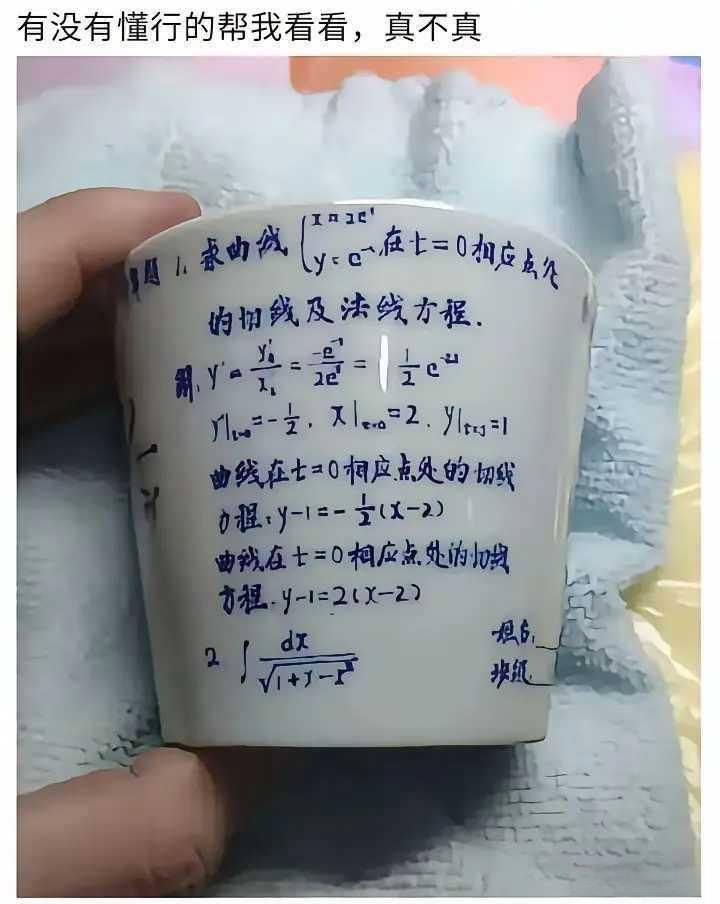 有没有懂行的帮我看看，真不真
题 1. 求曲线 { x = 2e^t
y = e^-t 在 t = 0 相应点处
的切线及法线方程.
解. y' = y't / x't = -e^-t / 2e^t = 1/2 e^-2t
y'|t=0 = -1/2 . x|t=0 = 2 . y|t=0 = 1
曲线在 t = 0 相应点处的切线
方程: y-1 = -1/2 (x-2)
曲线在 t = 0 相应点处的切线
方程. y-1 = 2(x-2)
2 ∫ dx / √1+x-x²
姓名:
班级: